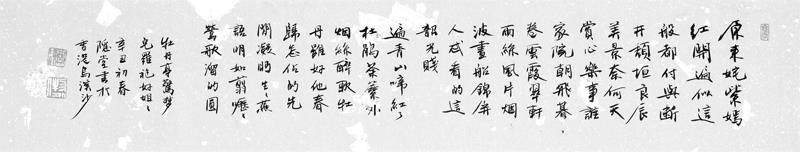 原来姹紫嫣
紅開遍似這
般都付與斷
井頹垣良辰
美景奈何天
賞心樂事誰
家院朝飛暮
卷雲霞翠軒
雨絲風片烟
波畫船錦屏
人忒看的這
韶光賤
遍青山啼紅了
杜鵑荼蘼外
烟絲醉軟牡
丹雖好他春
歸怎佔的先
閒凝眄生生燕
語明如翦嚦嚦
鶯歌溜的圓
牡丹亭驚夢
皂羅袍好姐姐
辛丑初春
隱堂書於
香港烏溪沙